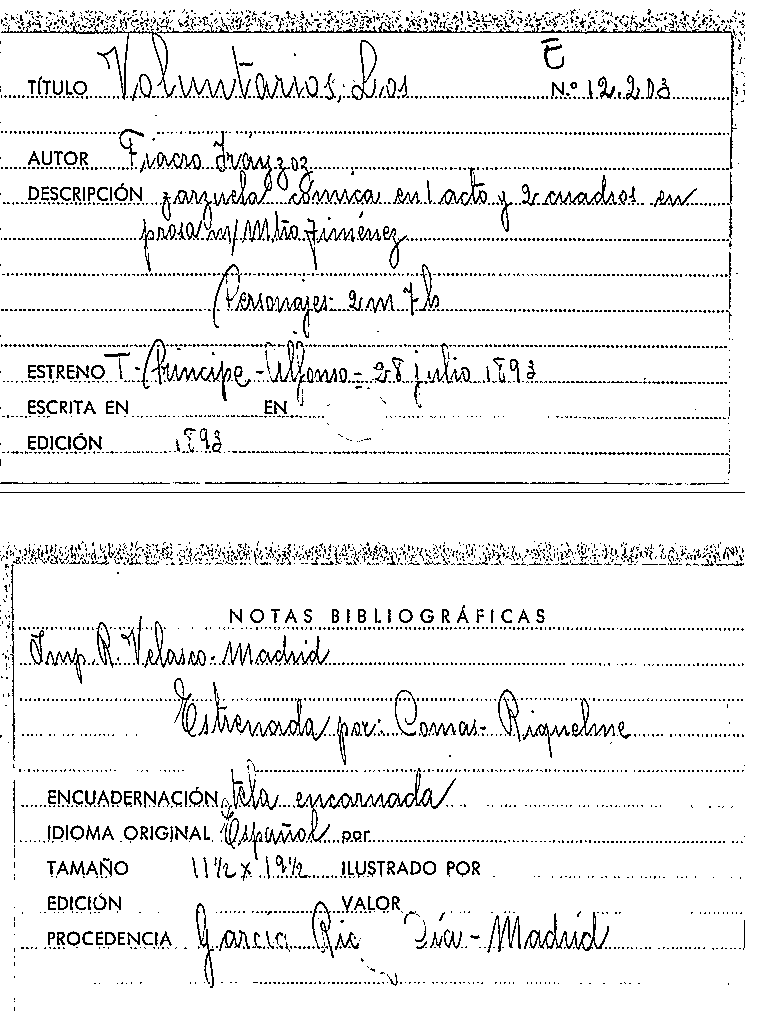 E
TÍTULO Voluntarios, Los N.º 12.203
AUTOR Fiacro Iráyzoz
DESCRIPCIÓN zarzuela cómica en 1 acto y 2 cuadros en
prosa m/ Mtro Jiménez
Personajes- 2 m 7 h
ESTRENO T- Príncipe-Alfonso- 28 julio 1893
ESCRITA EN EN
EDICIÓN 1893
NOTAS BIBLIOGRÁFICAS
Imp. R. Velasco- Madrid
Estrenada por: Comas- Riquelme
ENCUADERNACIÓN tela encarnada
IDIOMA ORIGINAL Español por
TAMAÑO 11½ x 19½ ILUSTRADO POR
EDICIÓN VALOR
PROCEDENCIA García Ric - Madrid